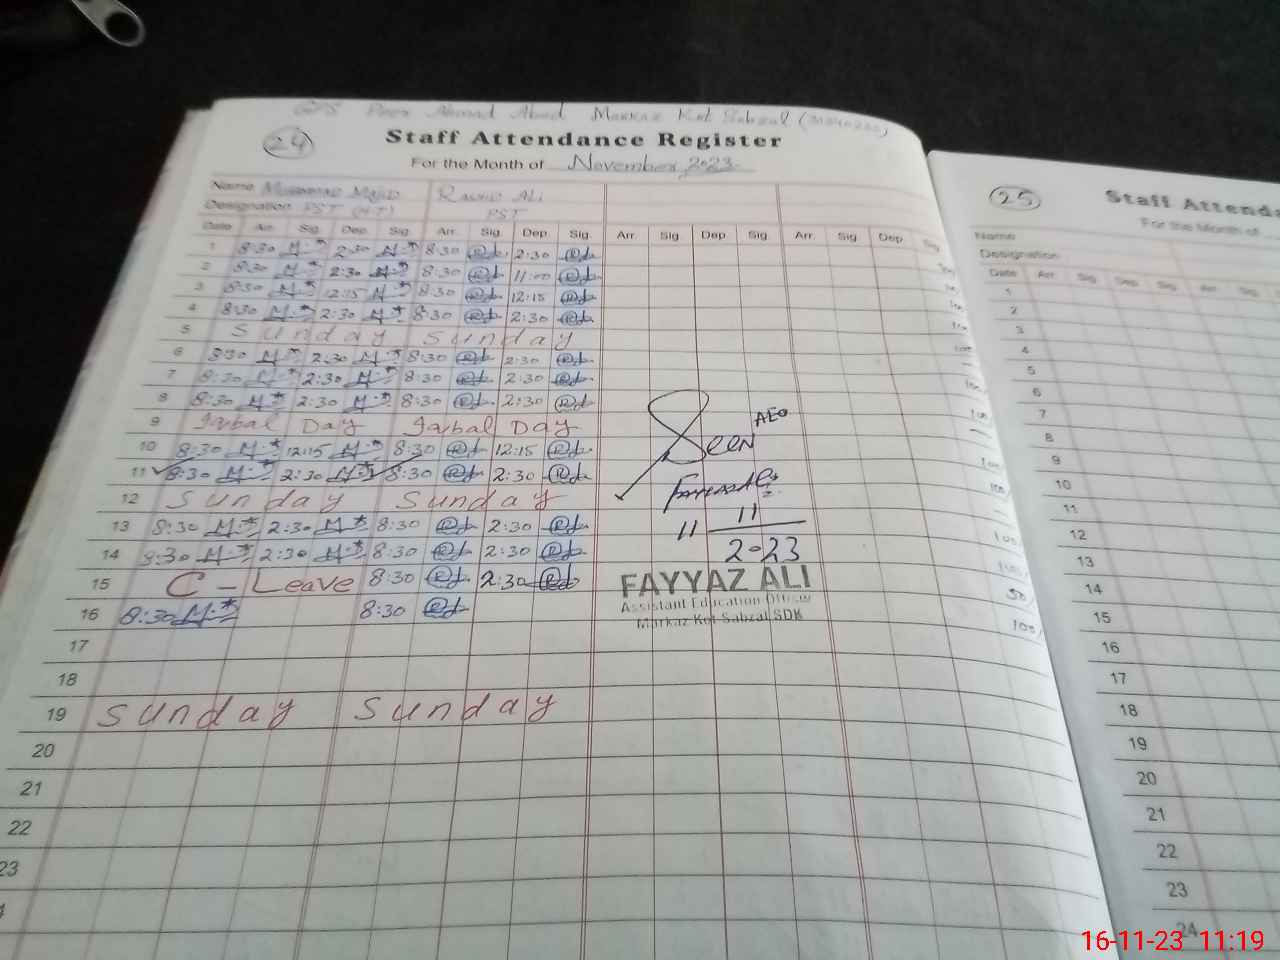 GPS Peer Ahmad Abad Markaz Kot Sabzal
24 Staff Attendance Register
For the Month of November 2023
Name Muhammad Majid Rashid Ali
Designation PST (H.T) PST
Date Arr. Sig. Dep. Sig. Arr. Sig. Dep. Sig. Arr. Sig. Dep. Sig. Arr. Sig. Dep. Sig.
1 8:30 2:30 8:30 2:30
2 8:30 2:30 8:30 11:00
3 8:30 12:15 8:30 12:15
4 8:30 2:30 8:30 2:30
5 Sunday Sunday
6 8:30 2:30 8:30 2:30
7 8:30 2:30 8:30 2:30
8 8:30 2:30 8:30 2:30
9 Iqbal Day Iqbal Day
10 8:30 12:15 8:30 12:15
11 8:30 2:30 8:30 2:30
12 Sunday Sunday
13 8:30 2:30 8:30 2:30
14 8:30 2:30 8:30 2:30
15 C - Leave 8:30 2:30
16 8:30 8:30
17
18
19 Sunday Sunday
20
21
22
23
Seen AEO
11 11
2023
FAYYAZ ALI
Assistant Education Officer
Markaz Kot Sabzal SDK
25 Staff Attenda
For the Month of
Name
Designation
Date Arr. Sig. Dep. Sig. Arr. Sig.
1
2
3
4
5
6
7
8
9
10
11
12
13
14
15
16
17
18
19
20
21
22
23
24
16-11-23 11:19